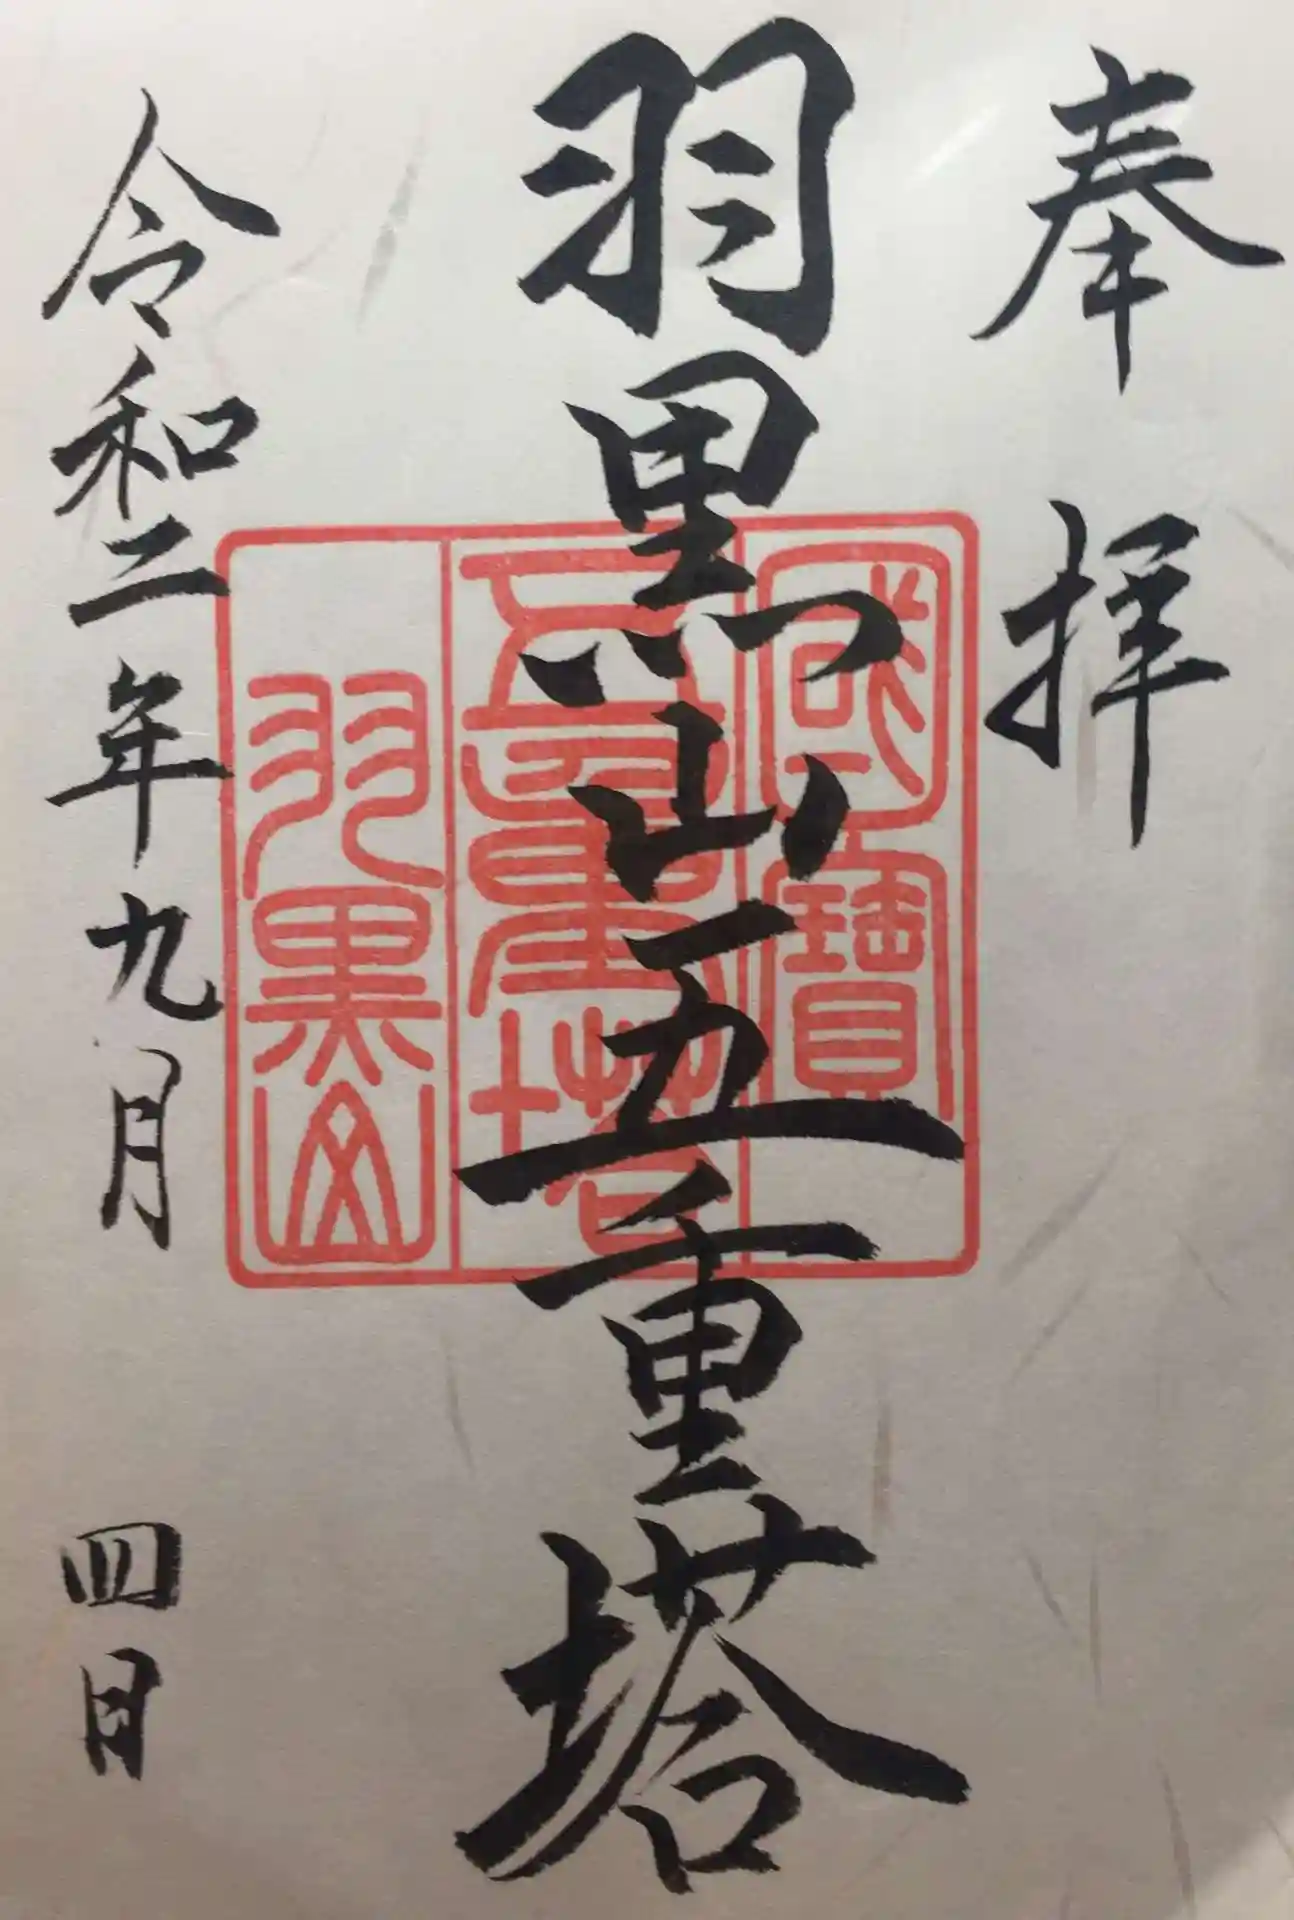 奉拝
羽黒山五重塔
國寶
五重塔
羽黒山
令和二年九月四日